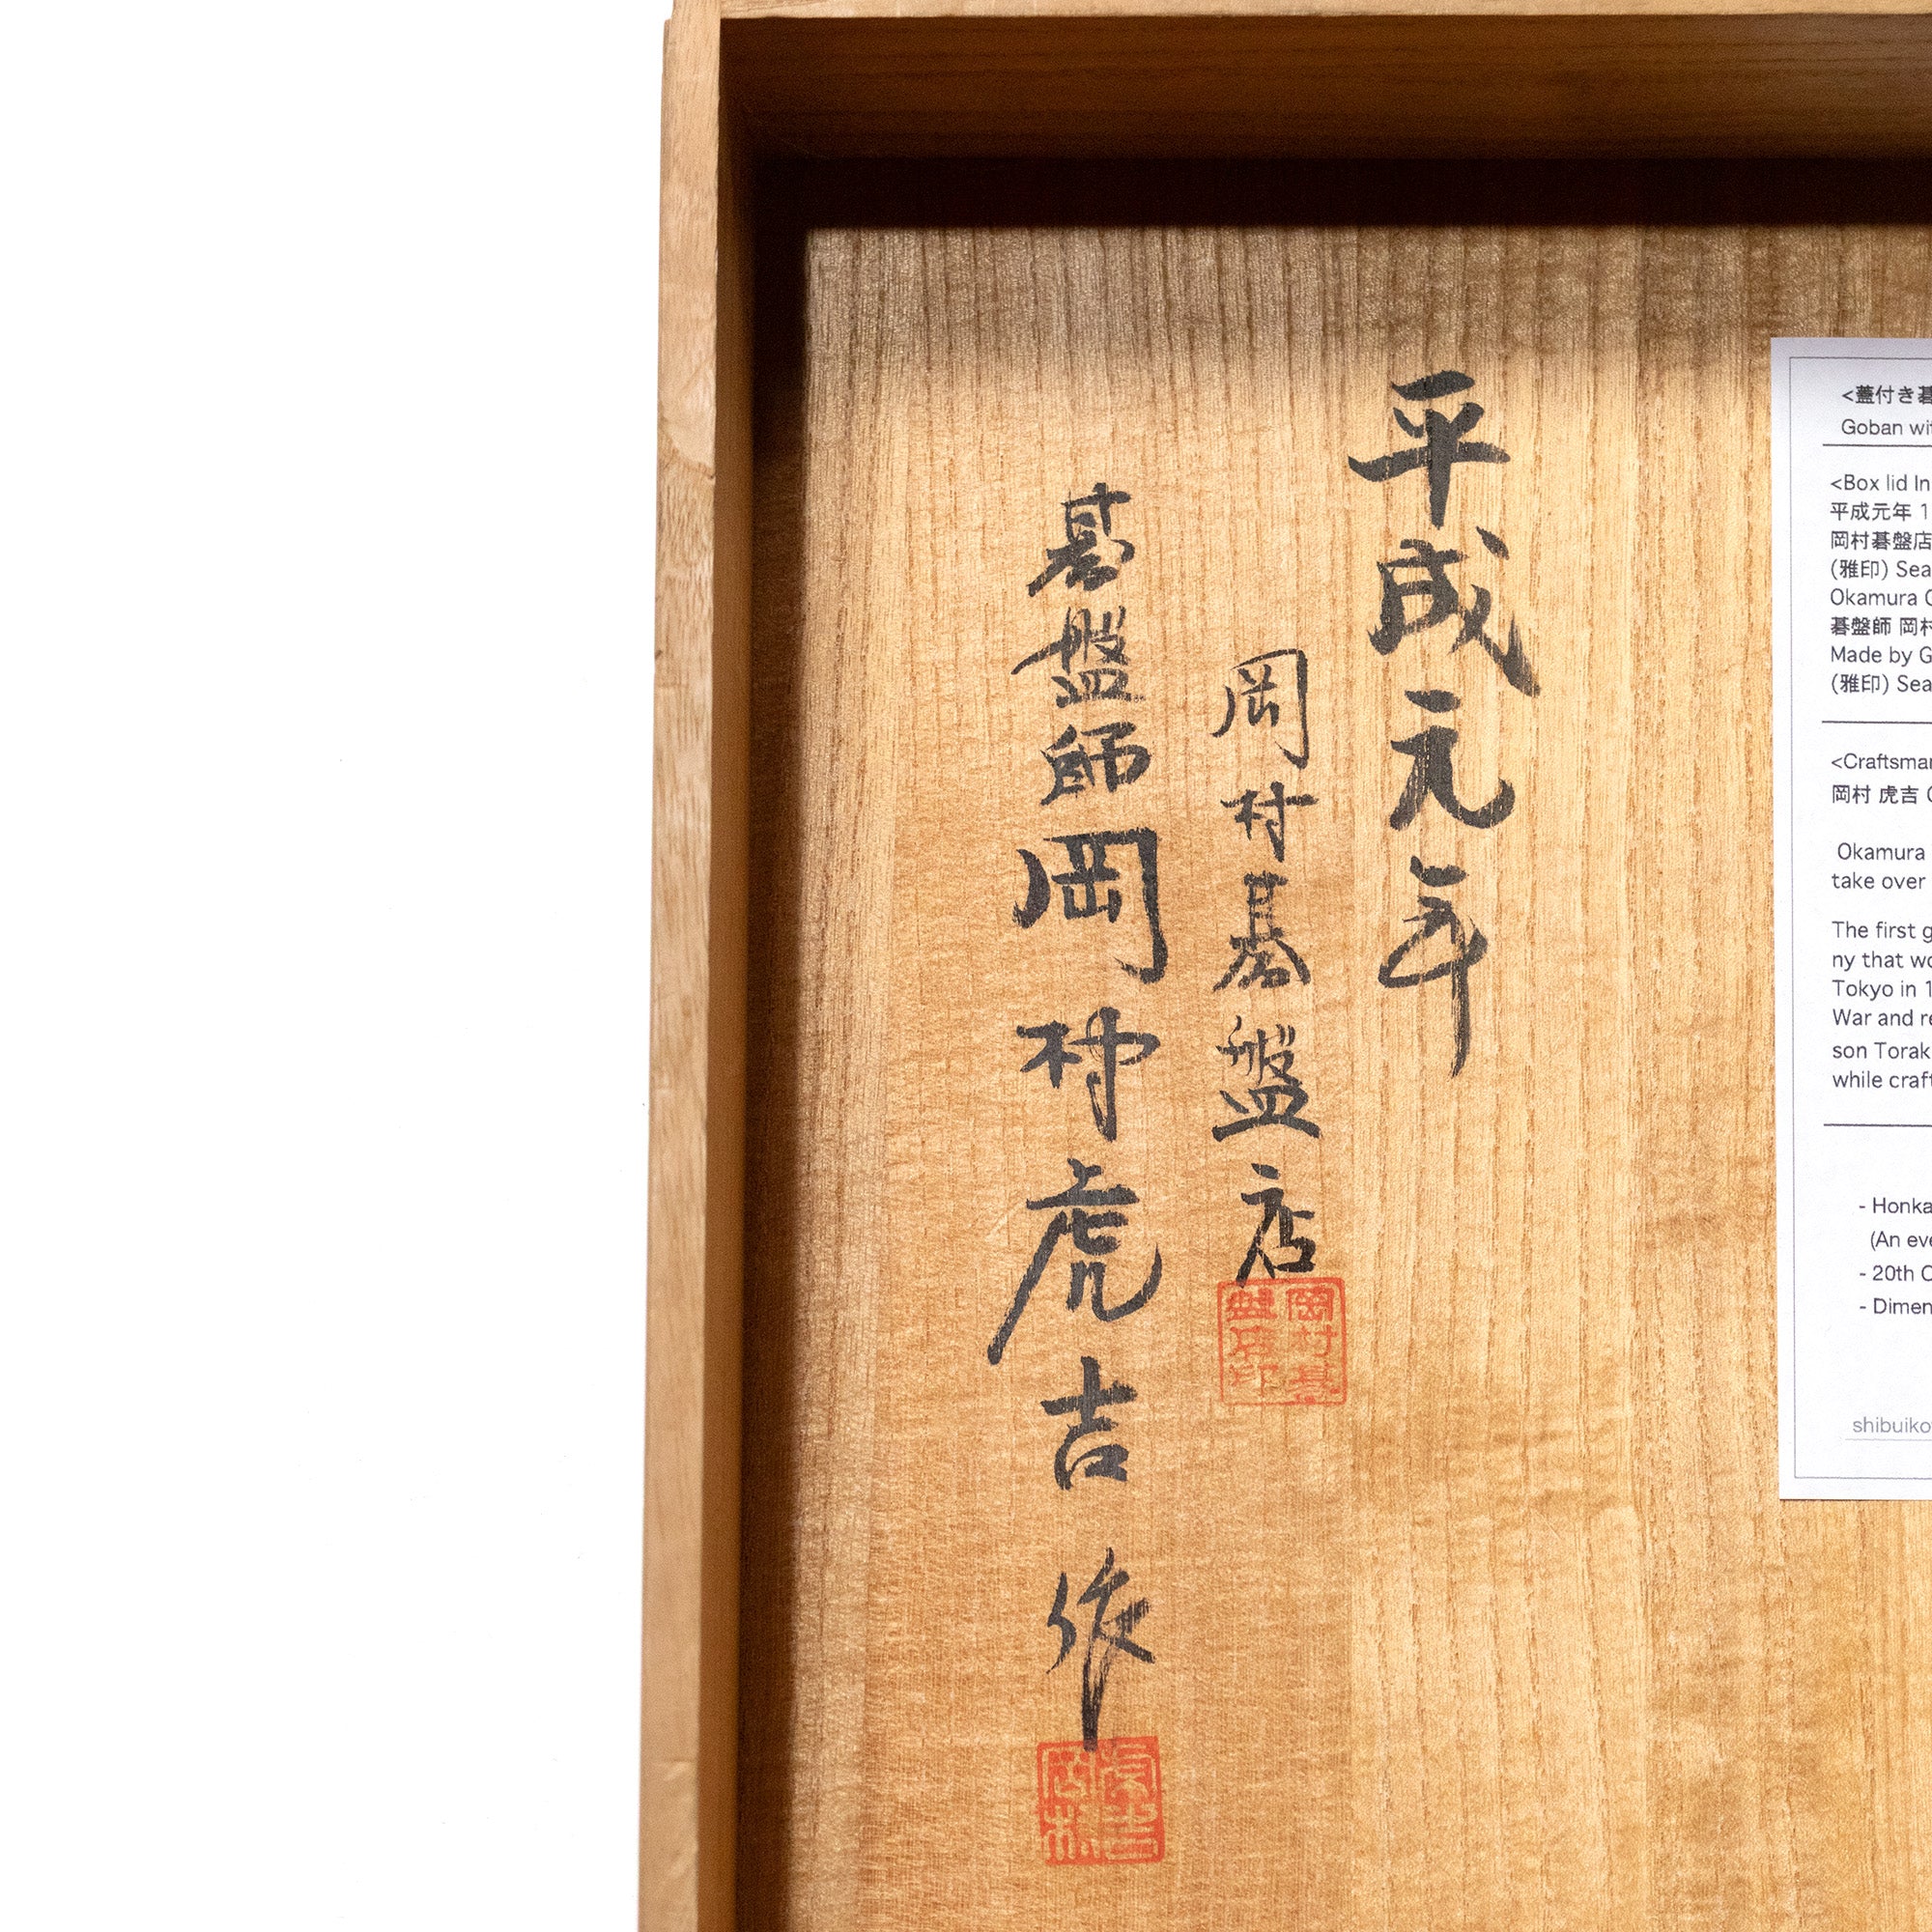 平成元年
岡村碁盤店
岡村碁盤店印
碁盤師岡村虎吉作
<蓋付き碁
Goban wit
<Box lid In
平成元年 1
岡村碁盤店
(雅印) Sea
Okamura G
碁盤師 岡村
Made by G
(雅印) Sea
<Craftsman
岡村 虎吉
Okamura
take over
The first g
ny that wo
Tokyo in 1
War and re
son Torak
while craft
- Honka
(An eve
- 20th C
- Dimen
shibuiko